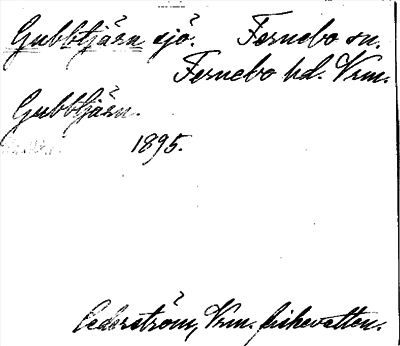 Gubbtjärn sjö. Fernebo sn.
Fernebo hd. Vrm.
Gubbtjärn.
1895.
Cederström, Vrm. fiskevatten.